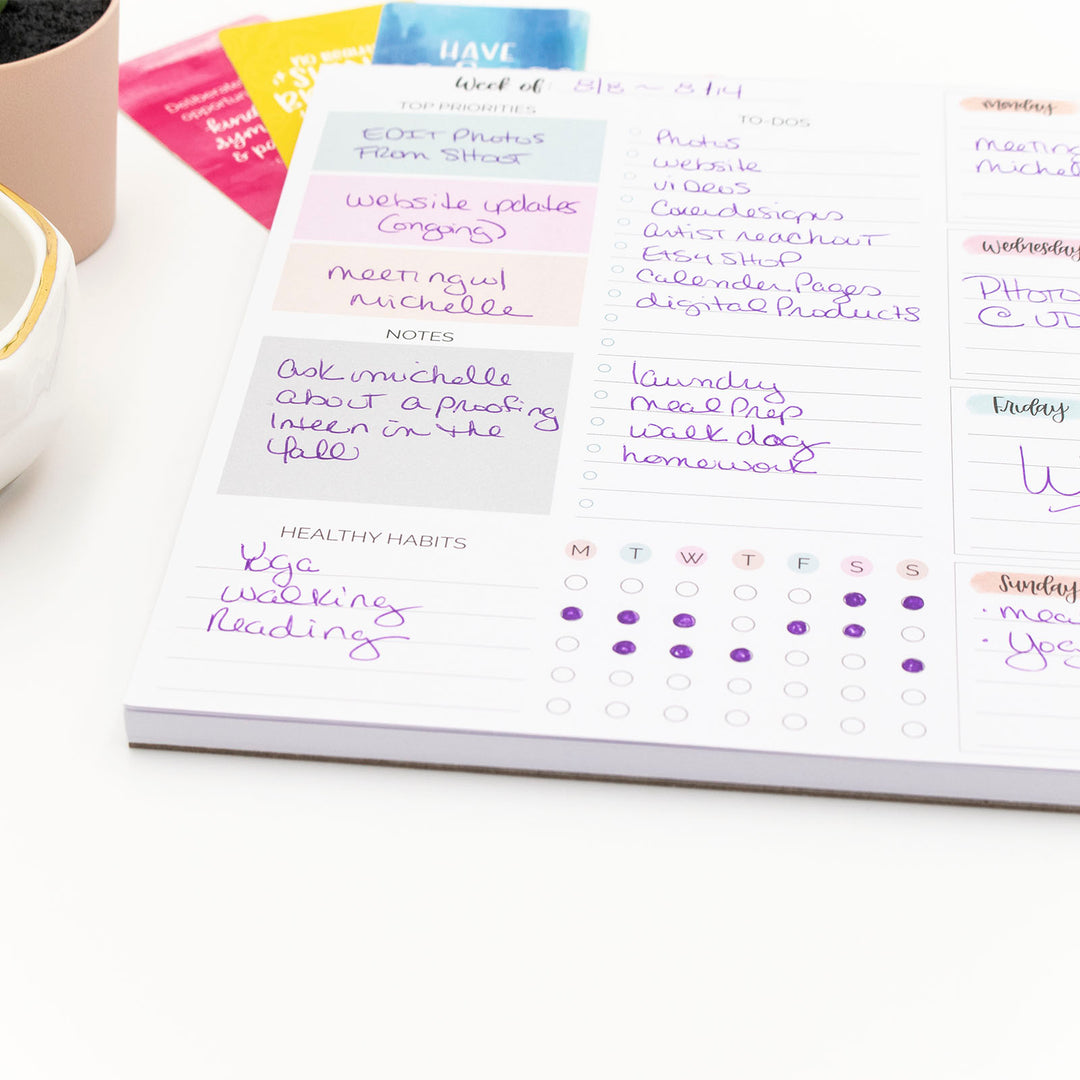 Deliberate
HAVE
Week of: 8/8 ~ 8/14
TOP PRIORITIES
EDIT Photos
From SHoot
website updates
(ongoing)
meeting w/
michelle
NOTES
ask michelle
about a proofing
Intern in the
fall
HEALTHY HABITS
Yoga
walking
Reading
TO-DOS
Photos
website
viDeos
Coverdesigns
artist reachout
Etsy SHOP
Calender Pages
digital Products
laundry
meal Prep
walk dog
homework
M T W T F S S
monday
meeting
michel
wednesday
PHOTO
Friday
Sunday
· mea
· Yog